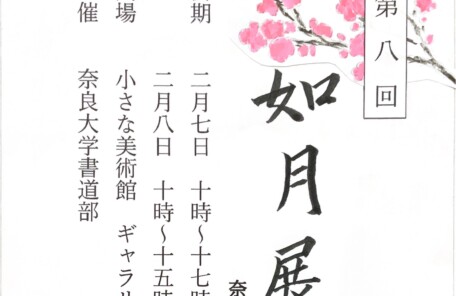 第八回
如月展
奈
期 二月七日 十時～十七時
二月八日 十時～十五時
場 小さな美術館 ギャラリ
催 奈良大学書道部